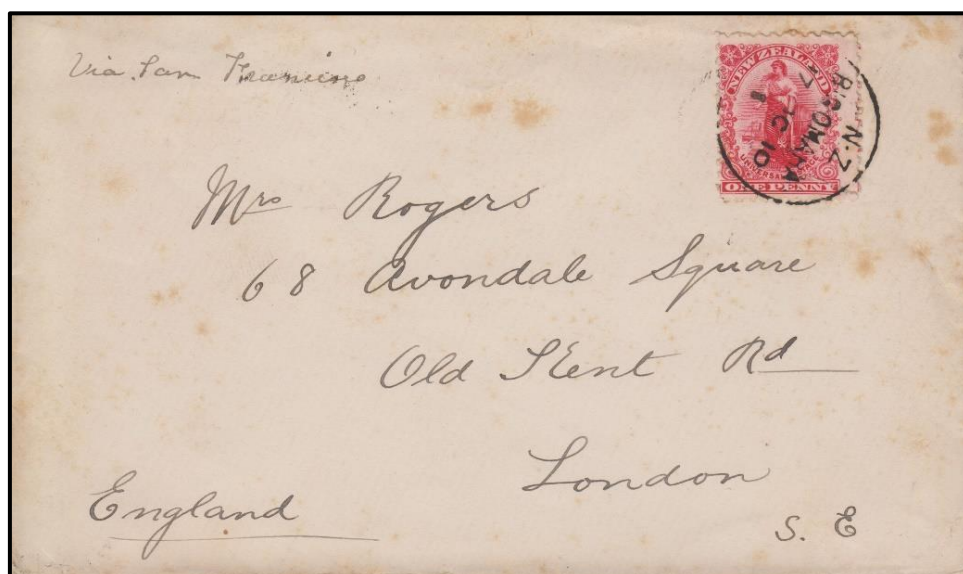 Via San Francisco
NEW ZEALAND
UNIVERSAL
ONE PENNY
N.Z
10
Mrs Rogers
68 Avondale Square
Old Kent Rd
London
England
S. E